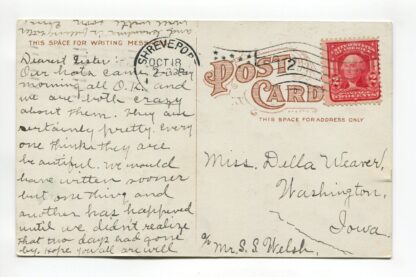 THIS SPACE FOR WRITING MESS
Dearest Sister:-
Our hats came
morning all O.K. and
we are both crazy
about them. They are
certainly pretty, every
one thinks they are
beautiful. We would
have written sooner
but one thing and
another has happened
until we didn't realize
that two days had gone
by. Hope you all are well
SHREVEPO
OCT 18
POST
CARD
THIS SPACE FOR ADDRESS ONLY
2
2
Miss. Della Weaver,
Washington,
Iowa.
c/o Mr. S. S. Welsh.